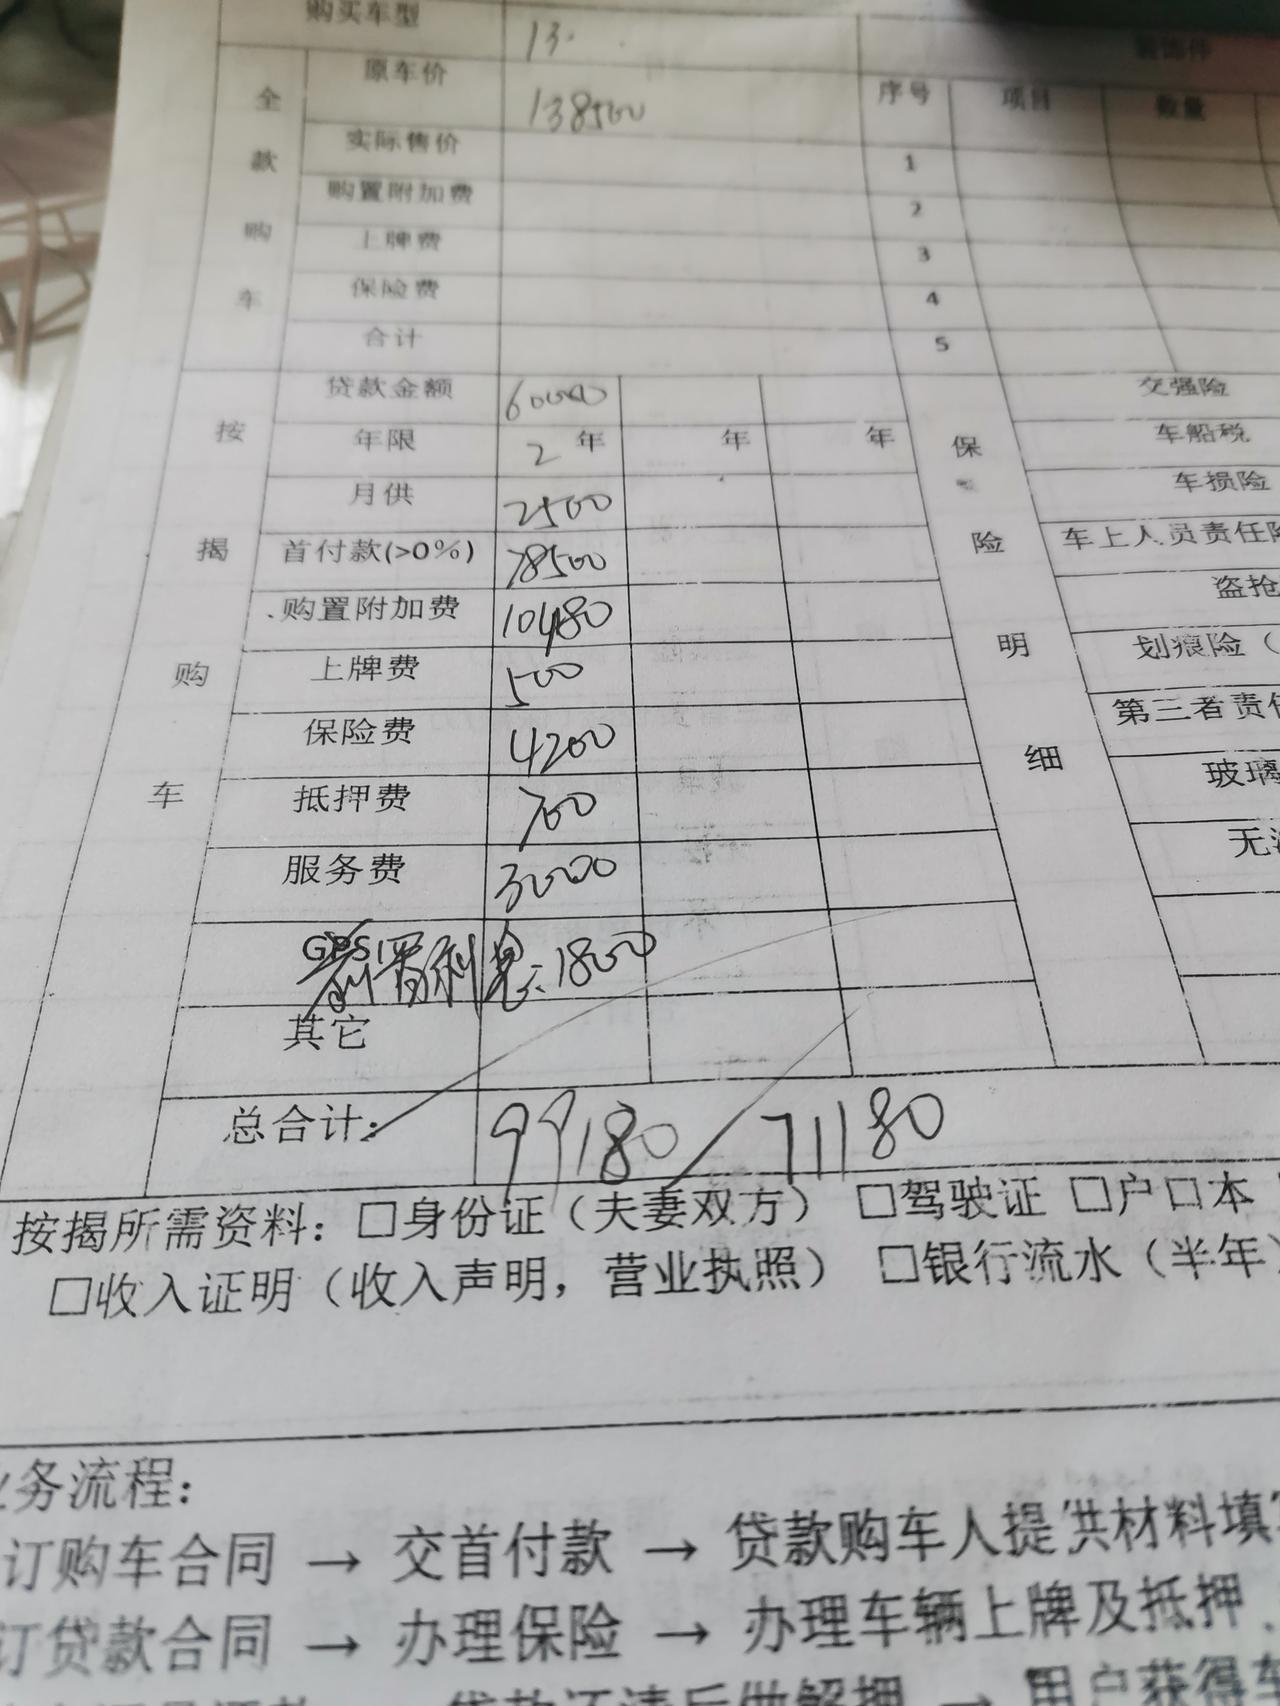 购买车型 13.
装饰件
全款购车
原车价 138500 序号 项目 数量
实际售价 1
购置附加费 2
上牌费 3
保险费 4
合计 5
按揭购车
贷款金额 60000 交强险
年限 2年 年 年 车船税
月供 2500 车损险
保险明细
首付款(>0%) 78500 车上人员责任险
购置附加费 10480 盗抢
上牌费 500 划痕险（
保险费 4200 第三者责任
抵押费 700 玻璃
服务费 3000 无
GPS 利息:1800
其它
总合计: 99180 71180
按揭所需资料: □身份证（夫妻双方） □驾驶证 □户口本
□收入证明（收入声明，营业执照） □银行流水（半年）
业务流程:
订购车合同 → 交首付款 → 贷款购车人提供材料填
订贷款合同 → 办理保险 → 办理车辆上牌及抵押
贷款还清后做解押 → 用户获得车